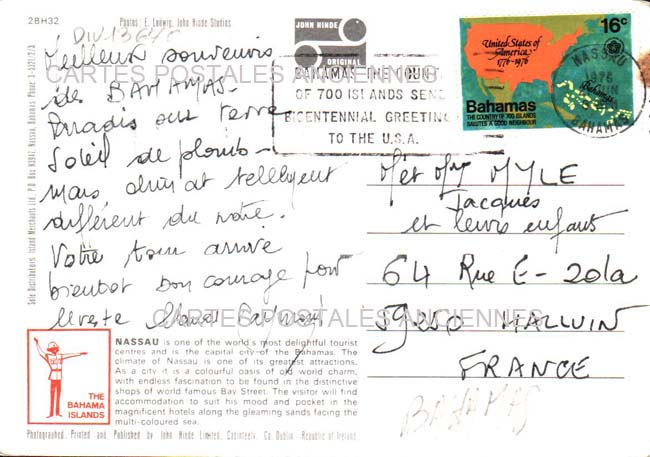 2BH32
Photos: E. Ludwig, John Hinde Studios
DIV13640
JOHN HINDE
ORIGINAL
Meilleurs souvenirs
des BAHAMAS-
Paradis sur terre
Soleil de plomb-
mais climat tellement
différent du notre.
Votre tour arrive
bientot bon courage pour
le reste
CARTES POSTALES ANCIENNES
BAHAMAS THE COUNT
OF 700 ISLANDS SEND
BICENTENNIAL GREETING
TO THE U.S.A.
16c
United States of
America
1776-1976
Bahamas
Bahamas
THE COUNTRY OF 700 ISLANDS
SALUTES A GOOD NEIGHBOUR
NASSAU
1976
JUN
BAHAMAS
M et Mme MYLE
Jacques
et leurs enfants
64 Rue E- Zola
59250 HALLUIN
FRANCE
BAHAMAS
CARTES POSTALES ANCIENNES
Sole Distributors: Island Merchants Ltd., P.O. Box N3947, Nassau, Bahamas. Phone
THE
BAHAMA
ISLANDS
NASSAU is one of the world's most delightful tourist
centres and is the capital city of the Bahamas. The
climate of Nassau is one of its greatest attractions.
As a city it is a colourful oasis of old world charm,
with endless fascination to be found in the distinctive
shops of world famous Bay Street. The visitor will find
accommodation to suit his mood and pocket in the
magnificent hotels along the gleaming sands facing the
multi-coloured sea.
Photographed, Printed and Published by John Hinde Limited, Cabinteely, Co. Dublin, Republic of Ireland